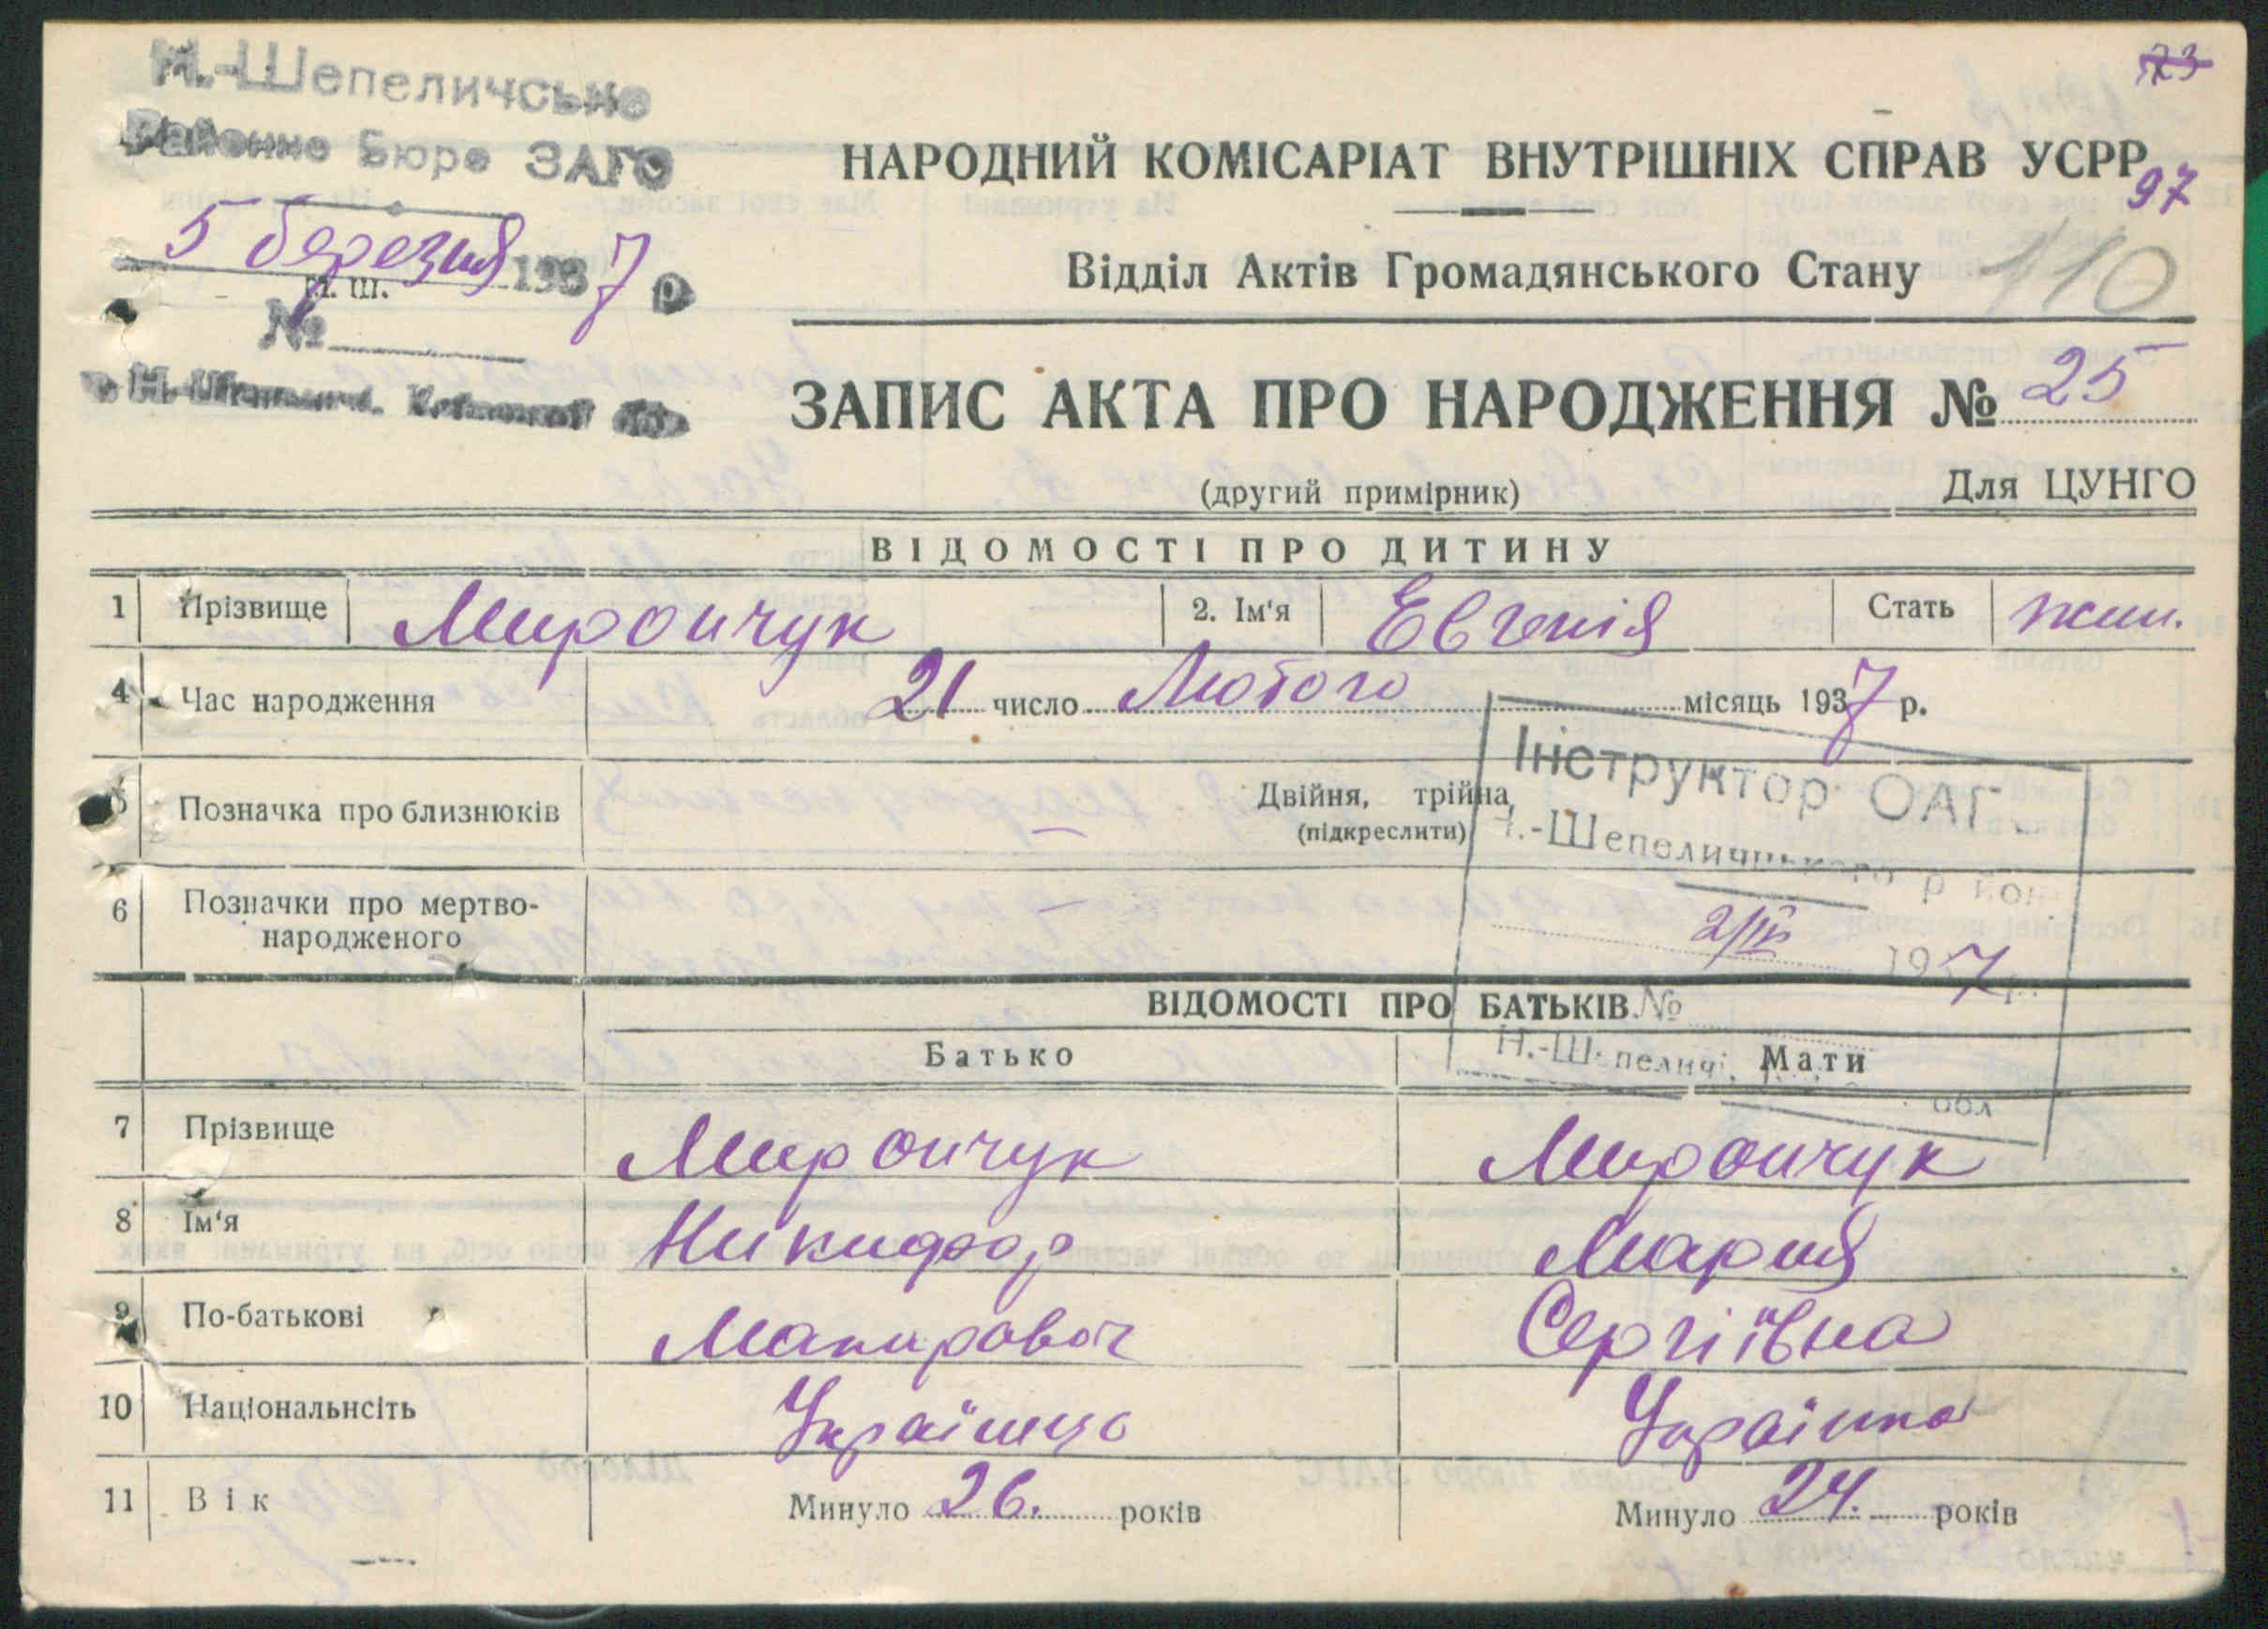 Н.-Шепеличське
Районне Бюро ЗАГС
5 березня 1937 р.
№
73
НАРОДНИЙ КОМІСАРІАТ ВНУТРІШНІХ СПРАВ УСРР
97
Відділ Актів Громадянського Стану
110
ЗАПИС АКТА ПРО НАРОДЖЕННЯ № 25
(другий примірник)
Для ЦУНГО
ВІДОМОСТІ ПРО ДИТИНУ
1 Прізвище Мирончук 2. Ім'я Евгенія Стать жин.
4 Час народження 21 число Лютого місяць 1937 р.
Інструктор ОАГС
5 Позначка про близнюків Двійня, трійна
(підкреслити) —
Н.-Шепелицького район
6 Позначки про мертво-
народженого —
2/III 1937 р.
ВІДОМОСТІ ПРО БАТЬКІВ
№
Батько Мати
Н.-Шепеличі, обл
7 Прізвище Мирончук Мирончук
8 Ім'я Никифор Мария
9 По-батькові Макарович Сергіївна
10 Національнсіть Українець Українка
11 Вік Минуло 26. років Минуло 24. років